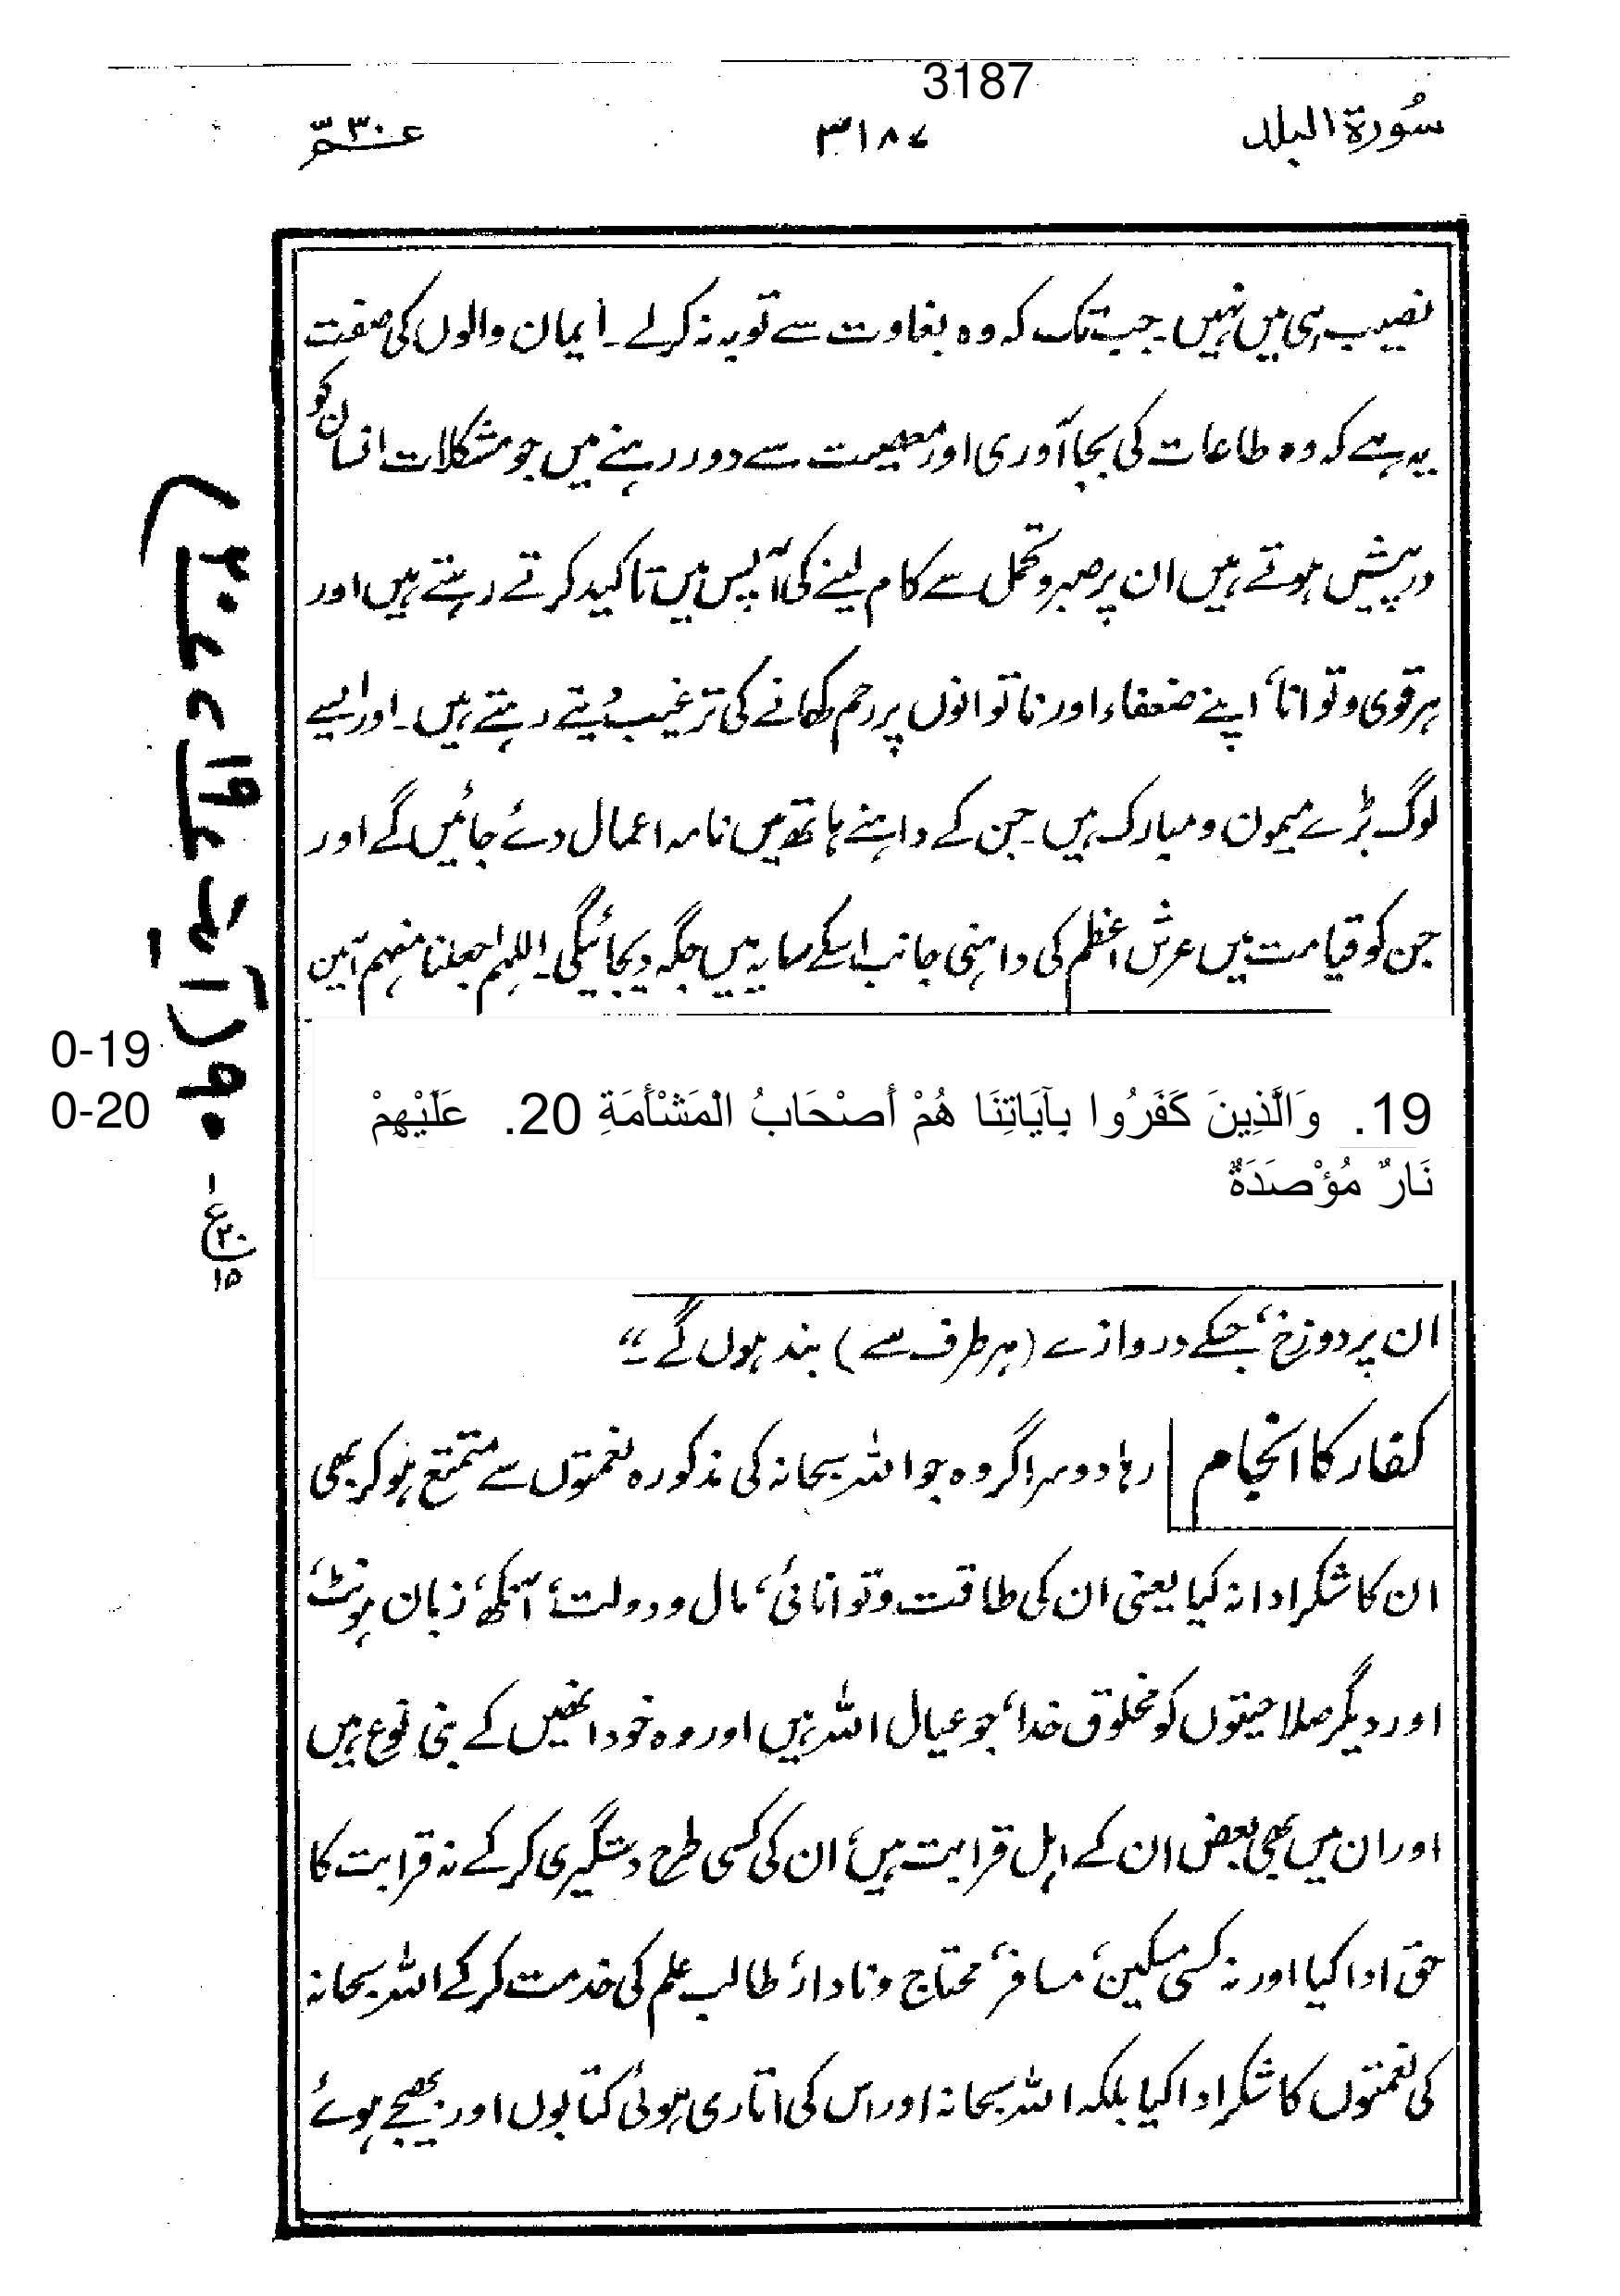 3187
سُورۃ البلد ۳۱۸۷ عمّ ۳۰
نصیب ہی میں نہیں۔ جب تک کہ وہ بغاوت سے توبہ نہ کرلے۔ ایمان والوں کی صفت
یہ ہے کہ وہ طاعات کی بجا آوری اور معصیت سے دور رہنے میں جو مشکلات انسان کو
درپیش ہوتے ہیں ان پر صبر و تحمل سے کام لینے کی آپس میں تاکید کرتے رہتے ہیں اور
ہر قوی و توانا، اپنے ضعفاء اور ناتوانوں پر رحم کھانے کی ترغیب دیتے رہتے ہیں۔ اور ایسے
لوگ بڑے میمون و مبارک ہیں۔ جن کے داہنے ہاتھ میں نامہ اعمال دئے جائیں گے اور
جن کو قیامت میں عرش اعظم کی داہنی جانب اسکے سایہ میں جگہ دیجائیگی۔ اللہم اجعلنا منہم آمین
0-19
0-20
۹۰ (آیۃ ۱۹ تا ۲۰)
19. وَالَّذِينَ كَفَرُوا بِآيَاتِنَا هُمْ أَصْحَابُ الْمَشْأَمَةِ 20. عَلَيْهِمْ
نَارٌ مُؤْصَدَةٌ
ان پر دوزخ، جسکے دروازے (ہر طرف سے) بند ہوں گے۔"
کفار کا انجام رہا دوسرا گروہ جو اللہ سبحانہ کی مذکورہ نعمتوں سے متمتع ہو کر بھی
ان کا شکر ادا نہ کیا یعنی ان کی طاقت و توانائی، مال و دولت، آنکھ، زبان ہونٹ،
اور دیگر صلاحیتوں کو مخلوق خدا، جو عیال اللہ ہیں اور وہ خود انھیں کے بنی نوع ہیں
اور ان میں بھی بعض ان کے اہل قرابت ہیں، ان کی کسی طرح دستگیری کرکے نہ قرابت کا
حق ادا کیا اور نہ کسی مسکین، مسافر، محتاج و نادار، طالب علم کی خدمت کرکے اللہ سبحانہ
کی نعمتوں کا شکر ادا کیا بلکہ اللہ سبحانہ اور اس کی اتاری ہوئی کتابوں اور بھیجے ہوئے